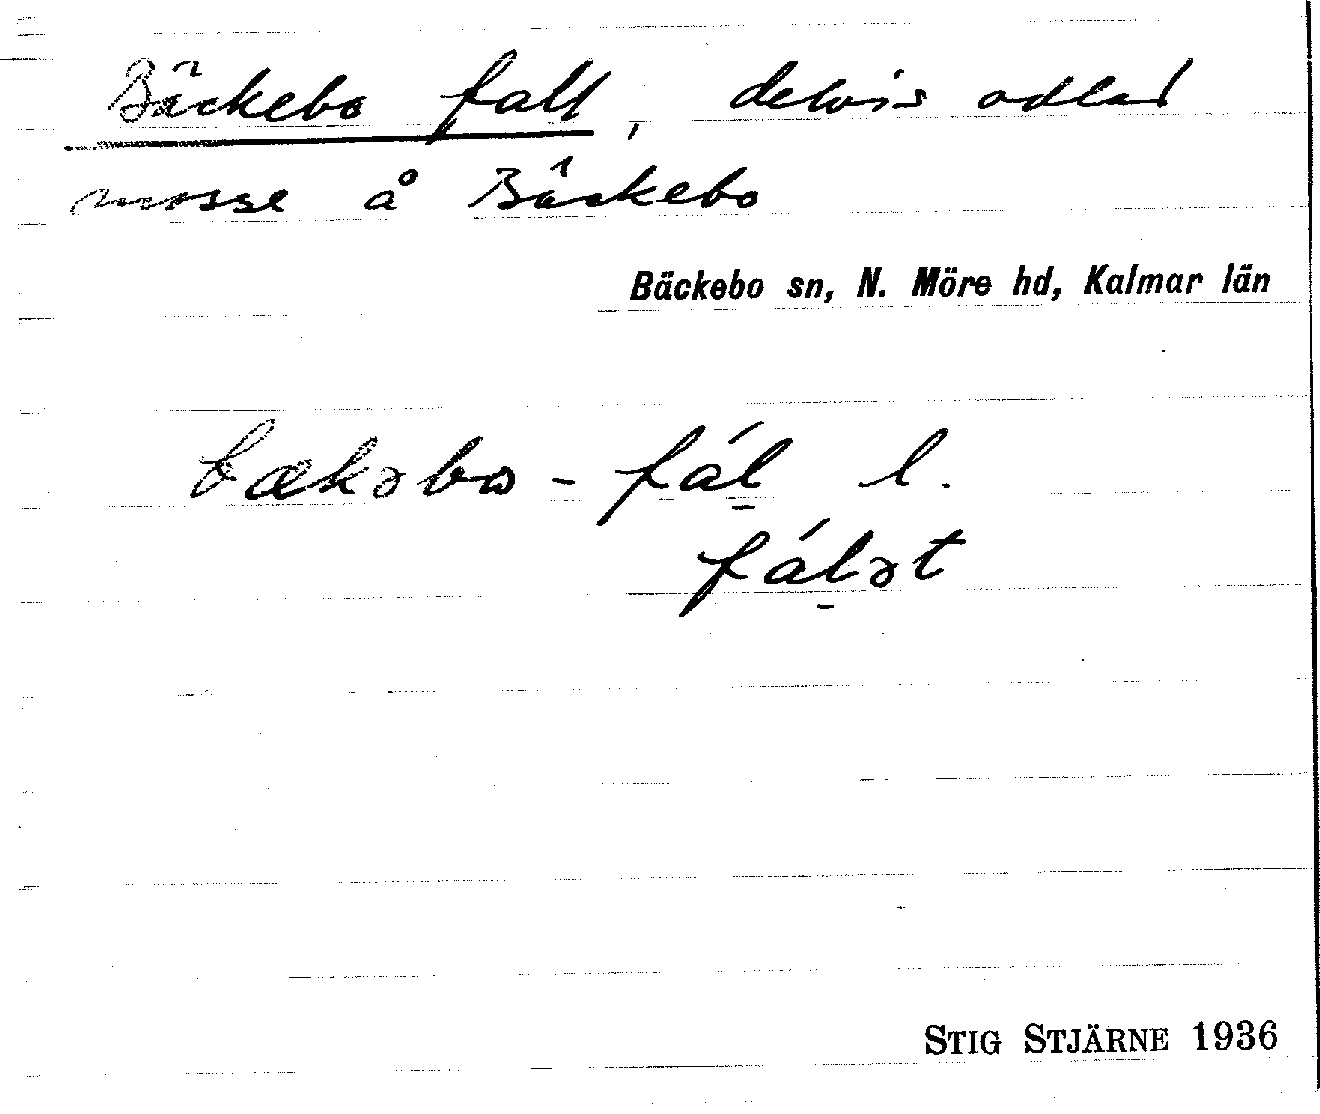 Bäckebo fall, delvis odlad
mosse å Bäckebo
Bäckebo sn, N. Möre hd, Kalmar län
bækəbo - fál̲ l.
fál̲ət
STIG STJÄRNE 1936